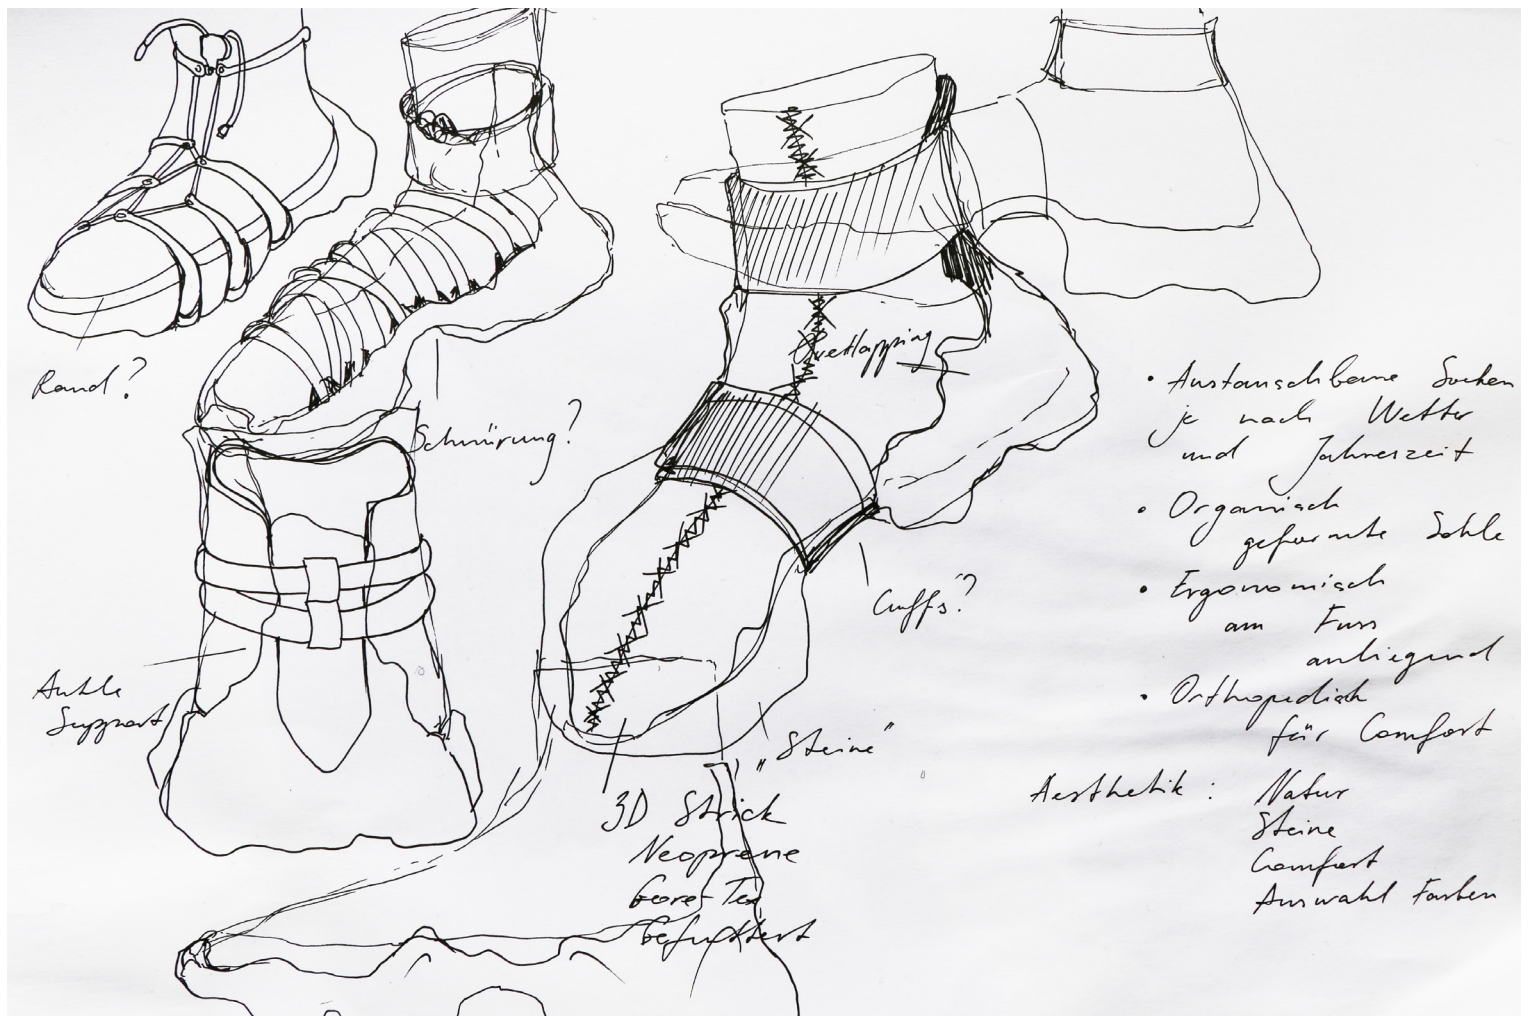 Rand?
Schnürung?
Overlapping
Cuffs?
Ankle
Support
„Steine"
3D Strick
Neoprene
Gore-Tex
Gefüttert
• Austauschbare Socken
je nach Wetter
und Jahreszeit
• Organisch
geformte Sohle
• Ergonomisch
am Fuss
anliegend
• Orthopedisch
für Comfort
Aesthetik : Natur
Steine
Comfort
Auswahl Farben